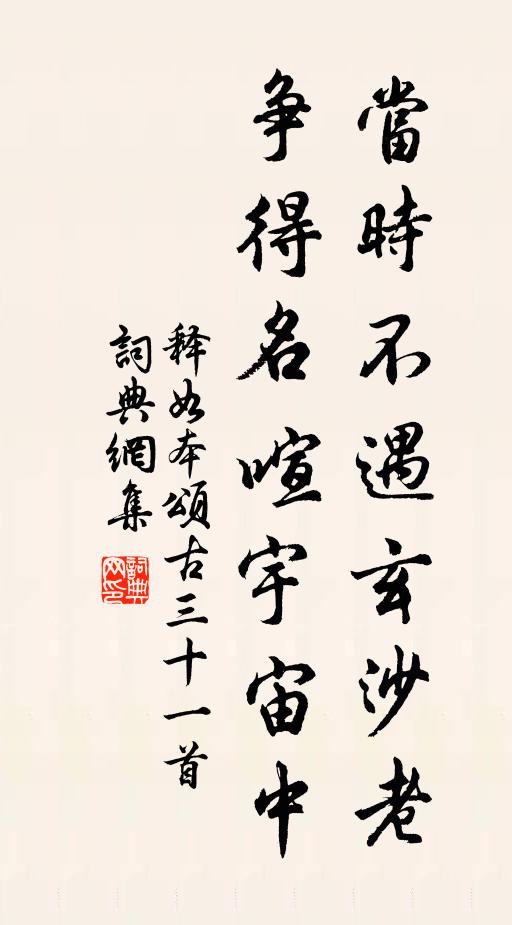 當時不遇玄沙老
争得名喧宇宙中
释如本頌古三十一首
詞典網集
詞典网印